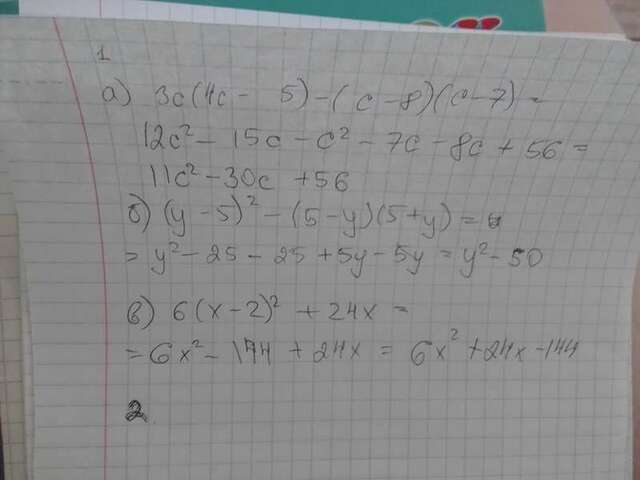 1
а) 3c(4c - 5) - (c - 8)(c - 7) =
12c² - 15c - c² - 7c - 8c + 56 =
11c² - 30c + 56
б) (y - 5)² - (5 - y)(5 + y) =
= y² - 25 - 25 + 5y - 5y = y² - 50
в) 6(x - 2)² + 24x =
= 6x² - 144 + 24x = 6x² + 24x - 144
2.